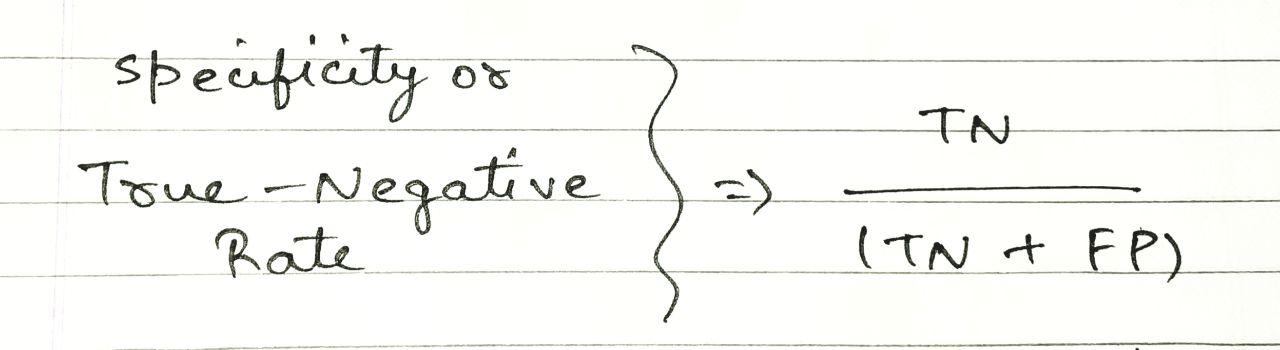 specificity or
True-Negative
Rate
} => TN
(TN + FP)